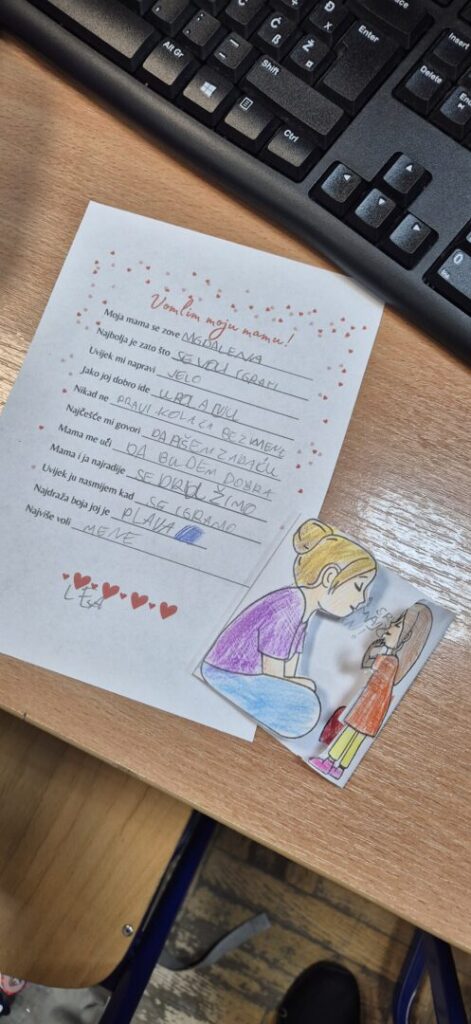 Enter
Insert
Delete
Shift
Alt Gr
Ctrl
Đ
Ž
Vomlim moju mamu!
Moja mama se zove MGDALENA
Najbolja je zato što SE VOLI IGRATI
Uvijek mi napravi JELO
Jako joj dobro ide
Nikad ne PRAVI KOLAČA BEZ MENE
Najčešće mi govori DA PIŠEM ZADAĆU
Mama me uči DA BUDEM DOBRA
Mama i ja najradije SE DRUŽIMO
Uvijek ju nasmijem kad SE IGRAMO
Najdraža boja joj je PLAVA
Najviše voli MENE
LEA